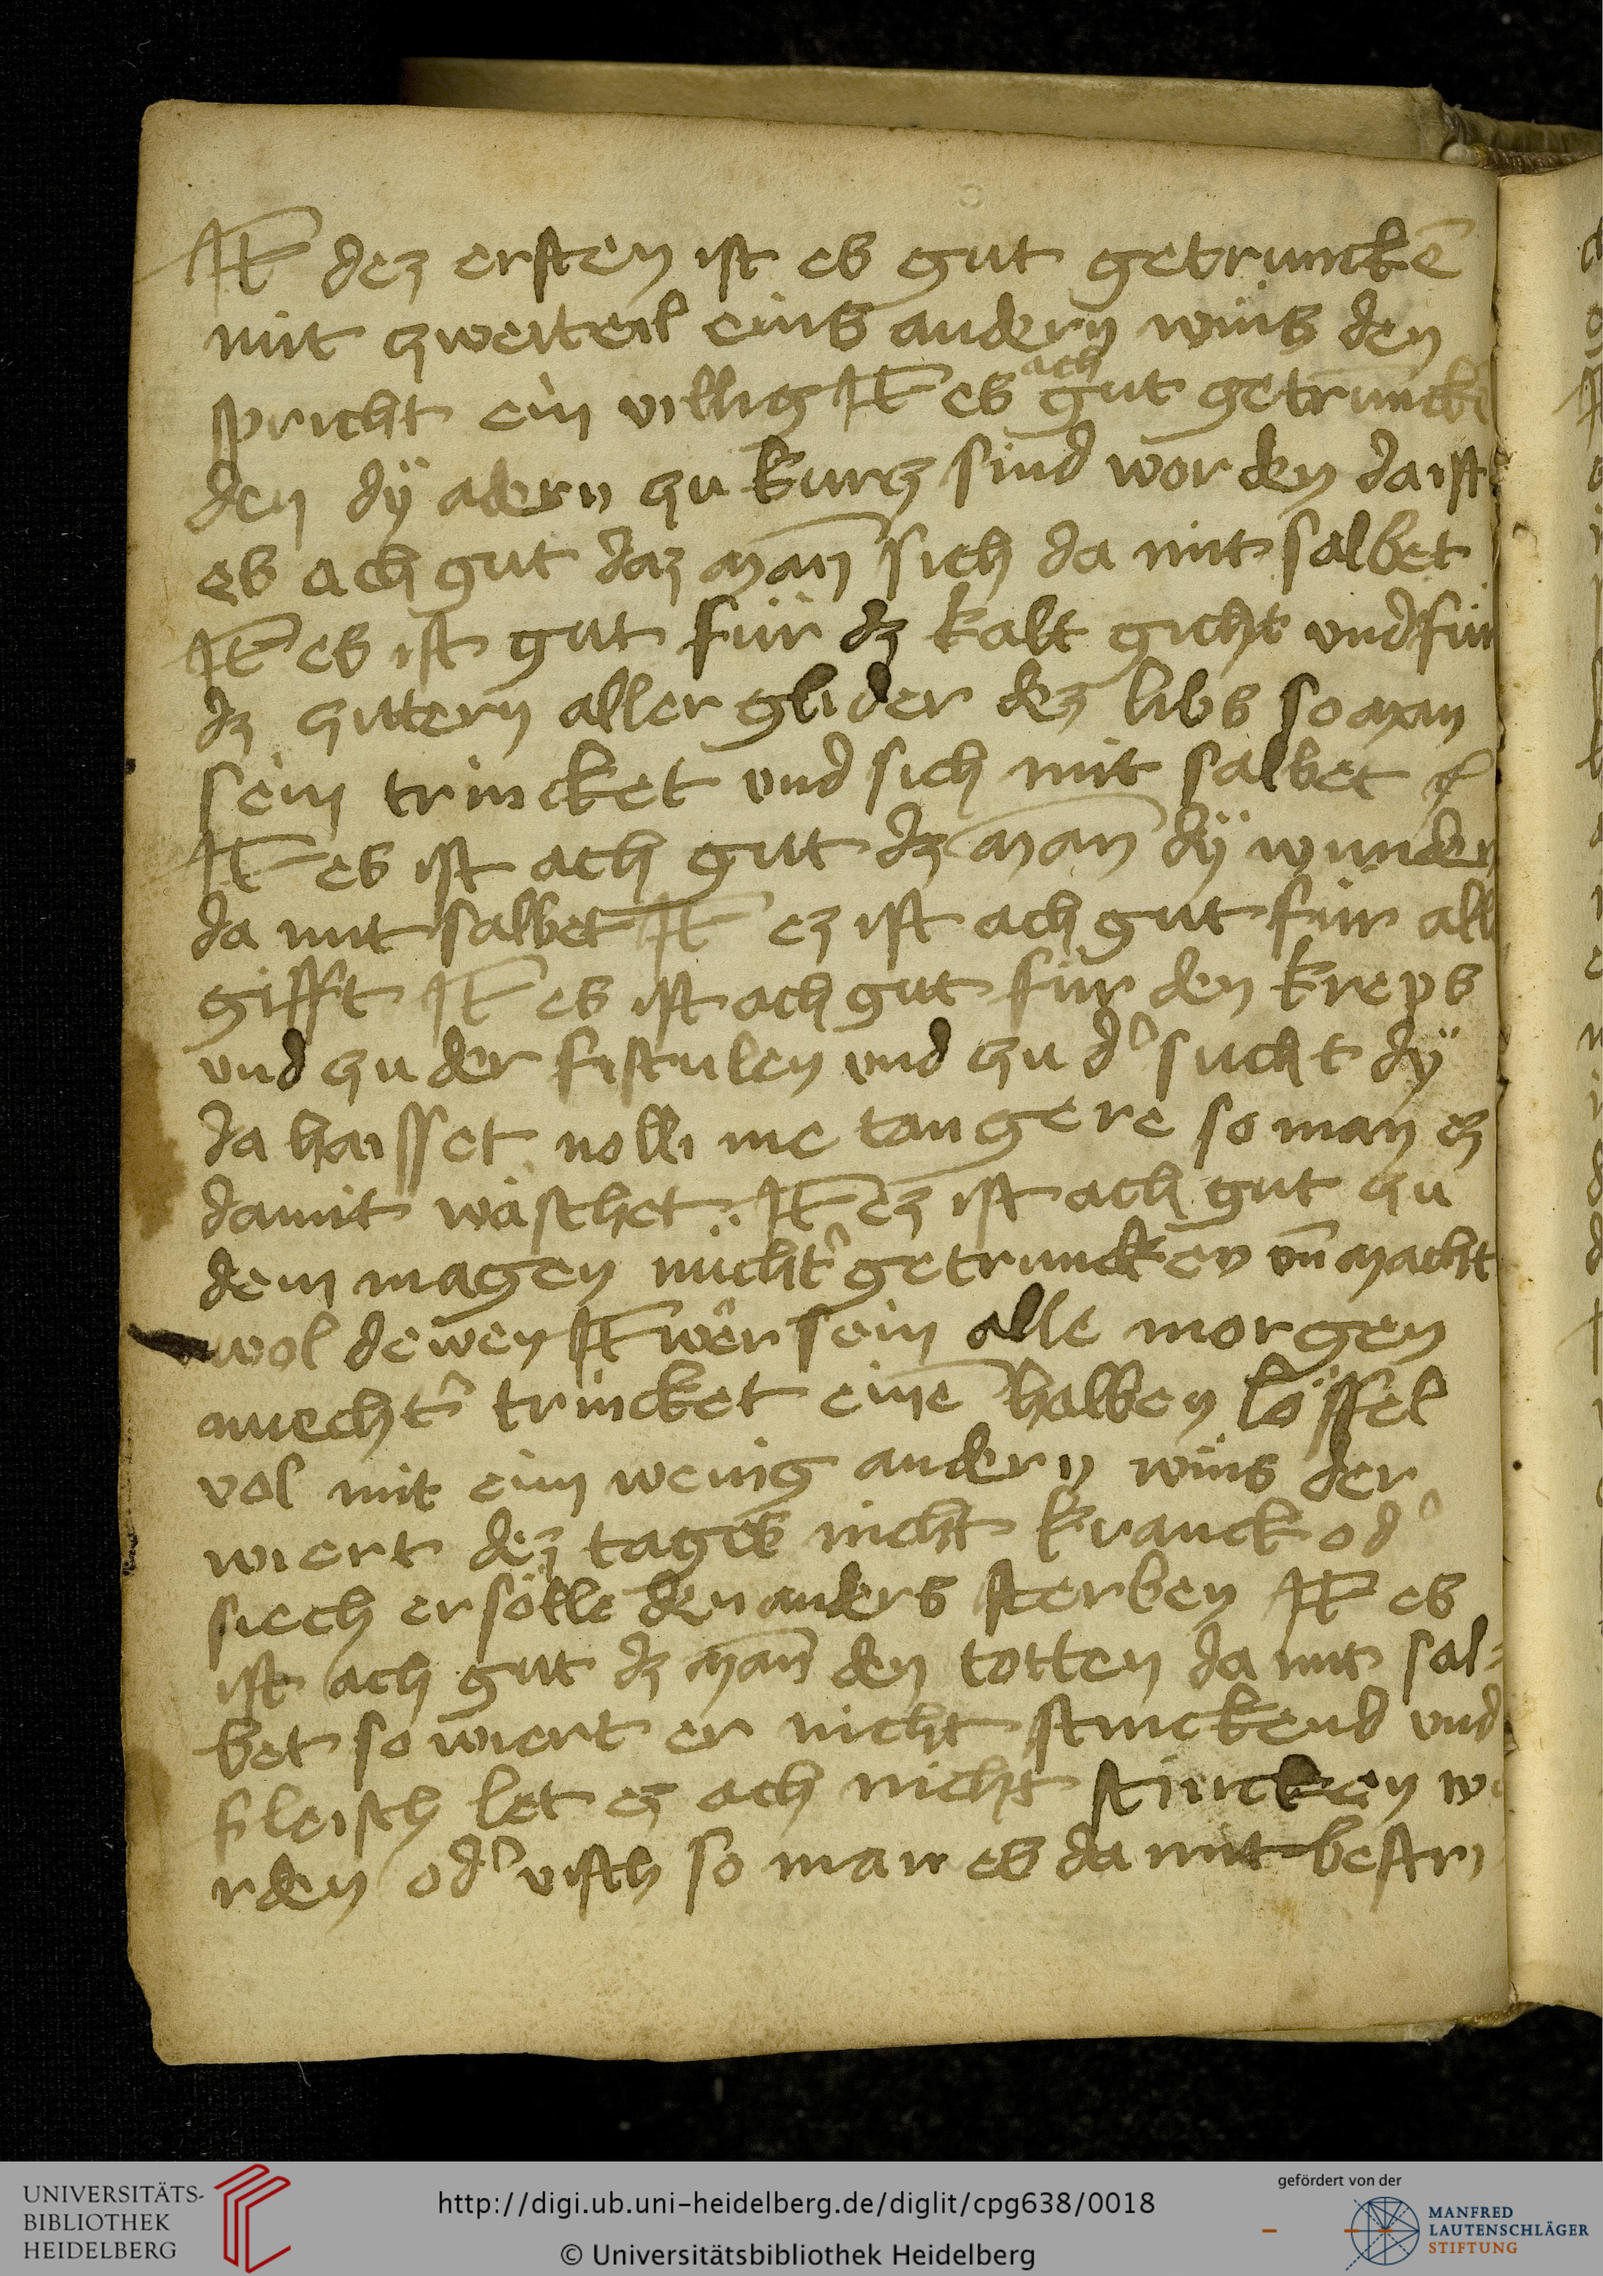 It̄ dez ersten ist es gut getrunckē
mit zweiteil eins andern wins den
ach
spricht ein villig It̄ es gut getruncke
den dÿ adern zu kurz sind worden da ist
es ach gut daz man sich da mit salbet
It̄ es ist gut für dz kalt gicht vnd für
dz zittern aller glider dez libs so man
sein trincket vnd sich mit salbet
It̄ es ist ach gut dz man dÿ wunden
da mit salbet It̄ ez ist ach gut für all
gifft It̄ es ist ach gut für den kreps
vnd zu der fistulen vnd zu d' sucht dÿ
da haisset nolli me tangere so man ez
damit wäschet It̄ ez ist ach gut zu
dem magen nücht' getruncken vn̄ macht
wol dewen It̄ wer sein alle morgen
nuecht' trincket einē halben löffel
vol mit eim wenig andern wins der
wiert dez tages nicht kranck od'
siech er sölle den anders sterben It̄ es
ist ach gut dz man den totten da mit sal-
bet so wiert er nicht stinckend vnd
fleisch let ez ach nicht stincken we
rden od' visch so man es da mit bestri
UNIVERSITÄTS-
BIBLIOTHEK
HEIDELBERG
http://digi.ub.uni-heidelberg.de/diglit/cpg638/0018
© Universitätsbibliothek Heidelberg
gefördert von der
MANFRED
LAUTENSCHLÄGER
STIFTUNG